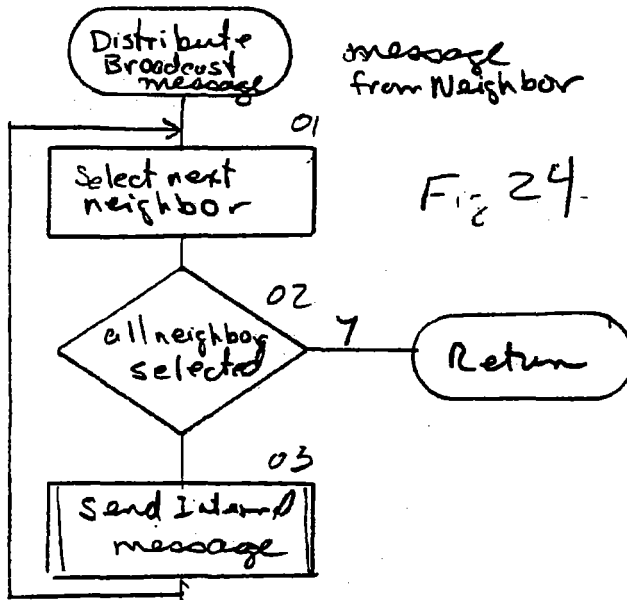 Distribute
Broadcast
message
message
from Neighbor
01
Select next
neighbor
Fig 24.
02
all neighbors
selected
Y
Return
03
Send Internal
message